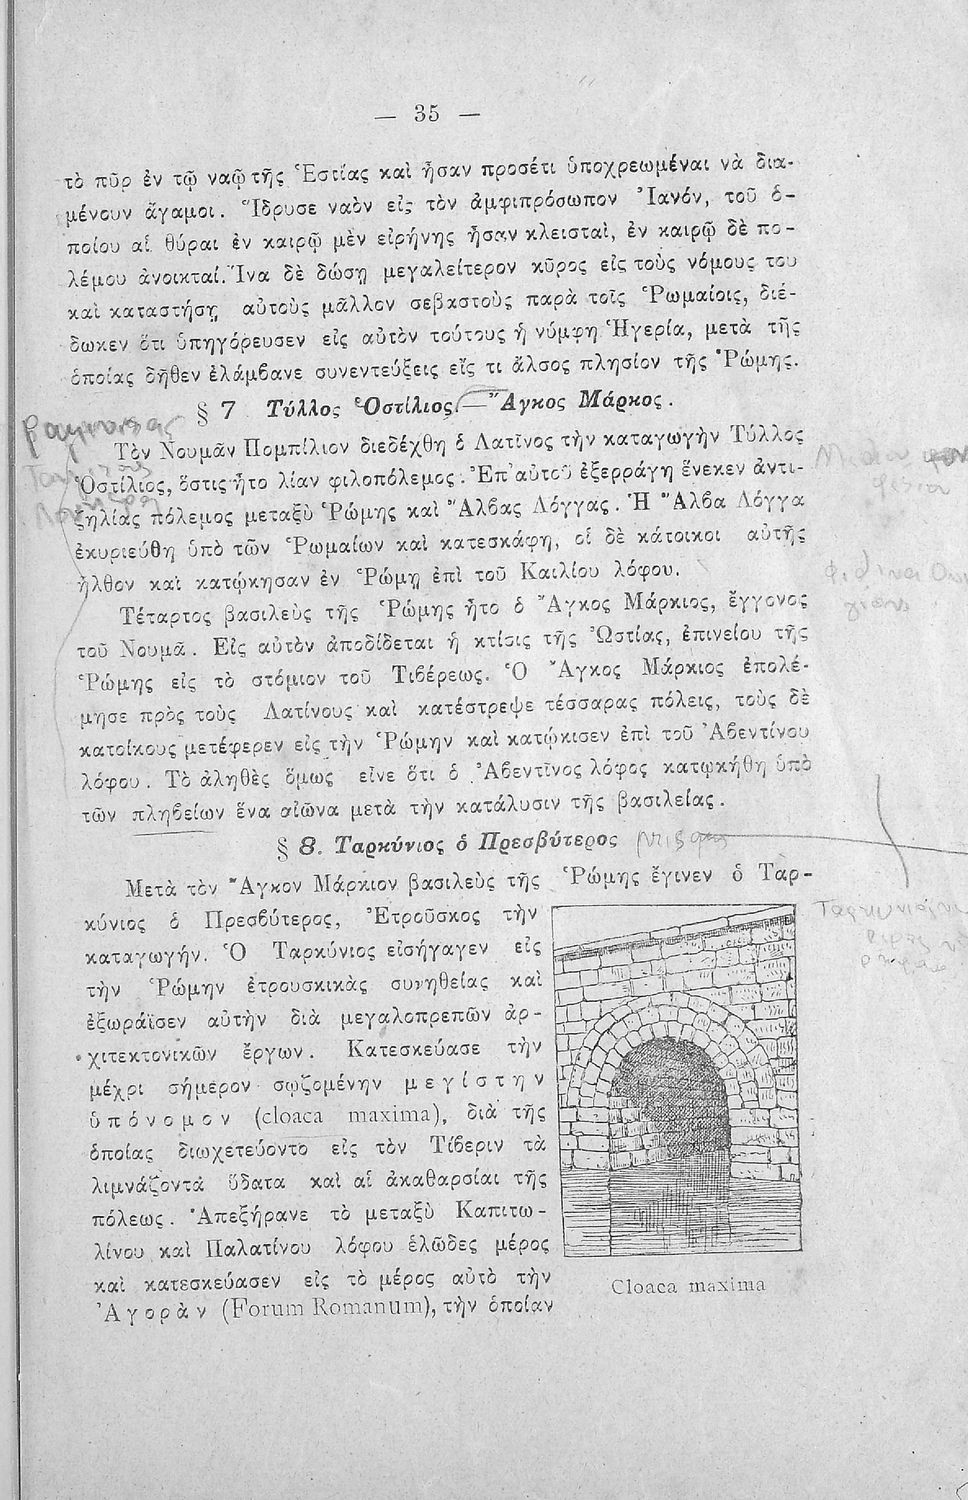 — 35 —
τὸ πῦρ ἐν τῷ ναῷ τῆς Ἑστίας καὶ ἦσαν προσέτι ὑποχρεωμέναι νὰ δια-
μένουν ἄγαμοι. Ἵδρυσε ναὸν εἰς τὸν ἀμφιπρόσωπον Ἰανόν, τοῦ ὁ-
ποίου αἱ θύραι ἐν καιρῷ μὲν εἰρήνης ἦσαν κλεισταὶ, ἐν καιρῷ δὲ πο-
λέμου ἀνοικταί. Ἵνα δὲ δώσῃ μεγαλείτερον κῦρος εἰς τοὺς νόμους του
καὶ καταστήσῃ αὐτοὺς μᾶλλον σεβαστοὺς παρὰ τοῖς Ῥωμαίοις, διέ-
δωκεν ὅτι ὑπηγόρευσεν εἰς αὐτὸν τούτους ἡ νύμφη Ἡγερία, μετὰ τῆς
ὁποίας δῆθεν ἐλάμβανε συνεντεύξεις εἴς τι ἄλσος πλησίον τῆς Ῥώμης.
§ 7 Τύλλος Ὁστίλιος.—Ἄγκος Μάρκος.
Τὸν Νουμᾶν Πομπίλιον διεδέχθη ὁ Λατῖνος τὴν καταγωγὴν Τύλλος
Ὁστίλιος, ὅστις ἦτο λίαν φιλοπόλεμος. Ἐπ᾽ αὐτοῦ ἐξερράγη ἕνεκεν ἀντι-
ζηλίας πόλεμος μεταξὺ Ῥώμης καὶ Ἄλβας Λόγγας. Ἡ Ἄλβα Λόγγα
ἐκυριεύθη ὑπὸ τῶν Ῥωμαίων καὶ κατεσκάφη, οἱ δὲ κάτοικοι αὐτῆς
ἦλθον καὶ κατῴκησαν ἐν Ῥώμῃ ἐπὶ τοῦ Καιλίου λόφου.
Τέταρτος βασιλεὺς τῆς Ῥώμης ἦτο ὁ Ἄγκος Μάρκιος, ἔγγονος
τοῦ Νουμᾶ. Εἰς αὐτὸν ἀποδίδεται ἡ κτίσις τῆς Ὠστίας, ἐπινείου τῆς
Ῥώμης εἰς τὸ στόμιον τοῦ Τιβέρεως. Ὁ Ἄγκος Μάρκιος ἐπολέ-
μησε πρὸς τοὺς Λατίνους καὶ κατέστρεψε τέσσαρας πόλεις, τοὺς δὲ
κατοίκους μετέφερεν εἰς τὴν Ῥώμην καὶ κατῴκισεν ἐπὶ τοῦ Ἀβεντίνου
λόφου. Τὸ ἀληθὲς ὅμως εἶνε ὅτι ὁ Ἀβεντῖνος λόφος κατῳκήθη ὑπὸ
τῶν πληβείων ἕνα αἰῶνα μετὰ τὴν κατάλυσιν τῆς βασιλείας.
§ 8. Ταρκύνιος ὁ Πρεσβύτερος
Μετὰ τὸν Ἄγκον Μάρκιον βασιλεὺς τῆς Ῥώμης ἔγινεν ὁ Ταρ-
κύνιος ὁ Πρεσβύτερος, Ἐτροῦσκος τὴν
καταγωγήν. Ὁ Ταρκύνιος εἰσήγαγεν εἰς
τὴν Ῥώμην ἐτρουσκικὰς συνηθείας καὶ
ἐξωράϊσεν αὐτὴν διὰ μεγαλοπρεπῶν ἀρ-
χιτεκτονικῶν ἔργων. Κατεσκεύασε τὴν
μέχρι σήμερον σῳζομένην μεγίστην
ὑπόνομον (cloaca maxima), διὰ τῆς
ὁποίας διωχετεύοντο εἰς τὸν Τίβεριν τὰ
λιμνάζοντα ὕδατα καὶ αἱ ἀκαθαρσίαι τῆς
πόλεως. Ἀπεξήρανε τὸ μεταξὺ Καπιτω-
λίνου καὶ Παλατίνου λόφου ἑλῶδες μέρος
καὶ κατεσκεύασεν εἰς τὸ μέρος αὐτὸ τὴν
Ἀγορὰν (Forum Romanum), τὴν ὁποίαν
Cloaca maxima